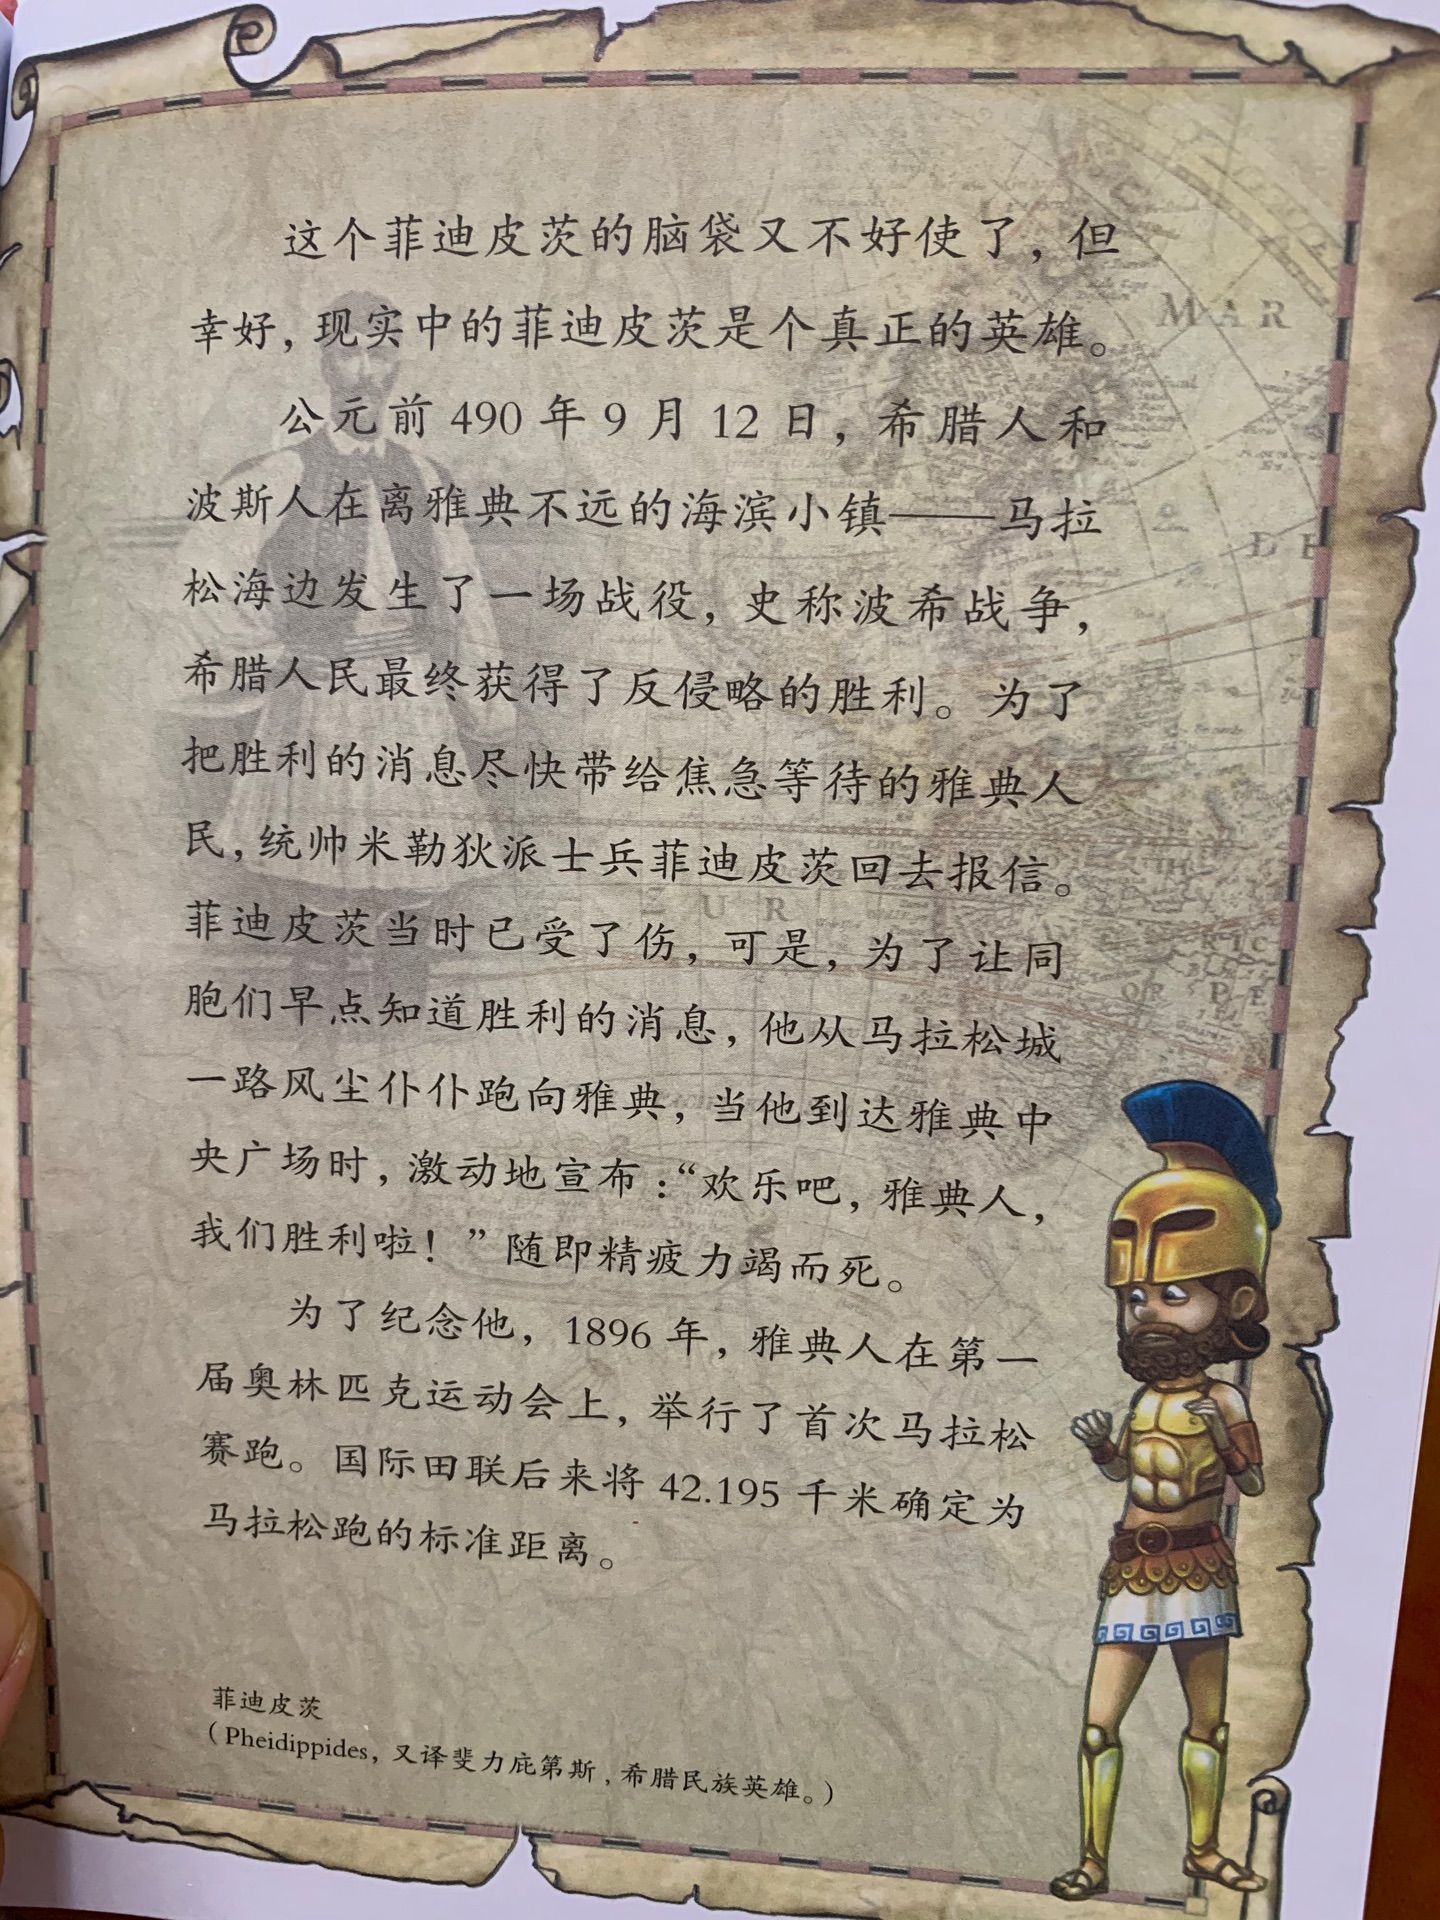 这个菲迪皮茨的脑袋又不好使了，但
幸好，现实中的菲迪皮茨是个真正的英雄。
公元前 490 年 9 月 12 日，希腊人和
波斯人在离雅典不远的海滨小镇——马拉
松海边发生了一场战役，史称波希战争，
希腊人民最终获得了反侵略的胜利。为了
把胜利的消息尽快带给焦急等待的雅典人
民，统帅米勒狄派士兵菲迪皮茨回去报信。
菲迪皮茨当时已受了伤，可是，为了让同
胞们早点知道胜利的消息，他从马拉松城
一路风尘仆仆跑向雅典，当他到达雅典中
央广场时，激动地宣布：“欢乐吧，雅典人，
我们胜利啦！”随即精疲力竭而死。
为了纪念他，1896 年，雅典人在第一
届奥林匹克运动会上，举行了首次马拉松
赛跑。国际田联后来将 42.195 千米确定为
马拉松跑的标准距离。
菲迪皮茨
（Pheidippides，又译斐力庇第斯，希腊民族英雄。）
MAR
DE
EUR